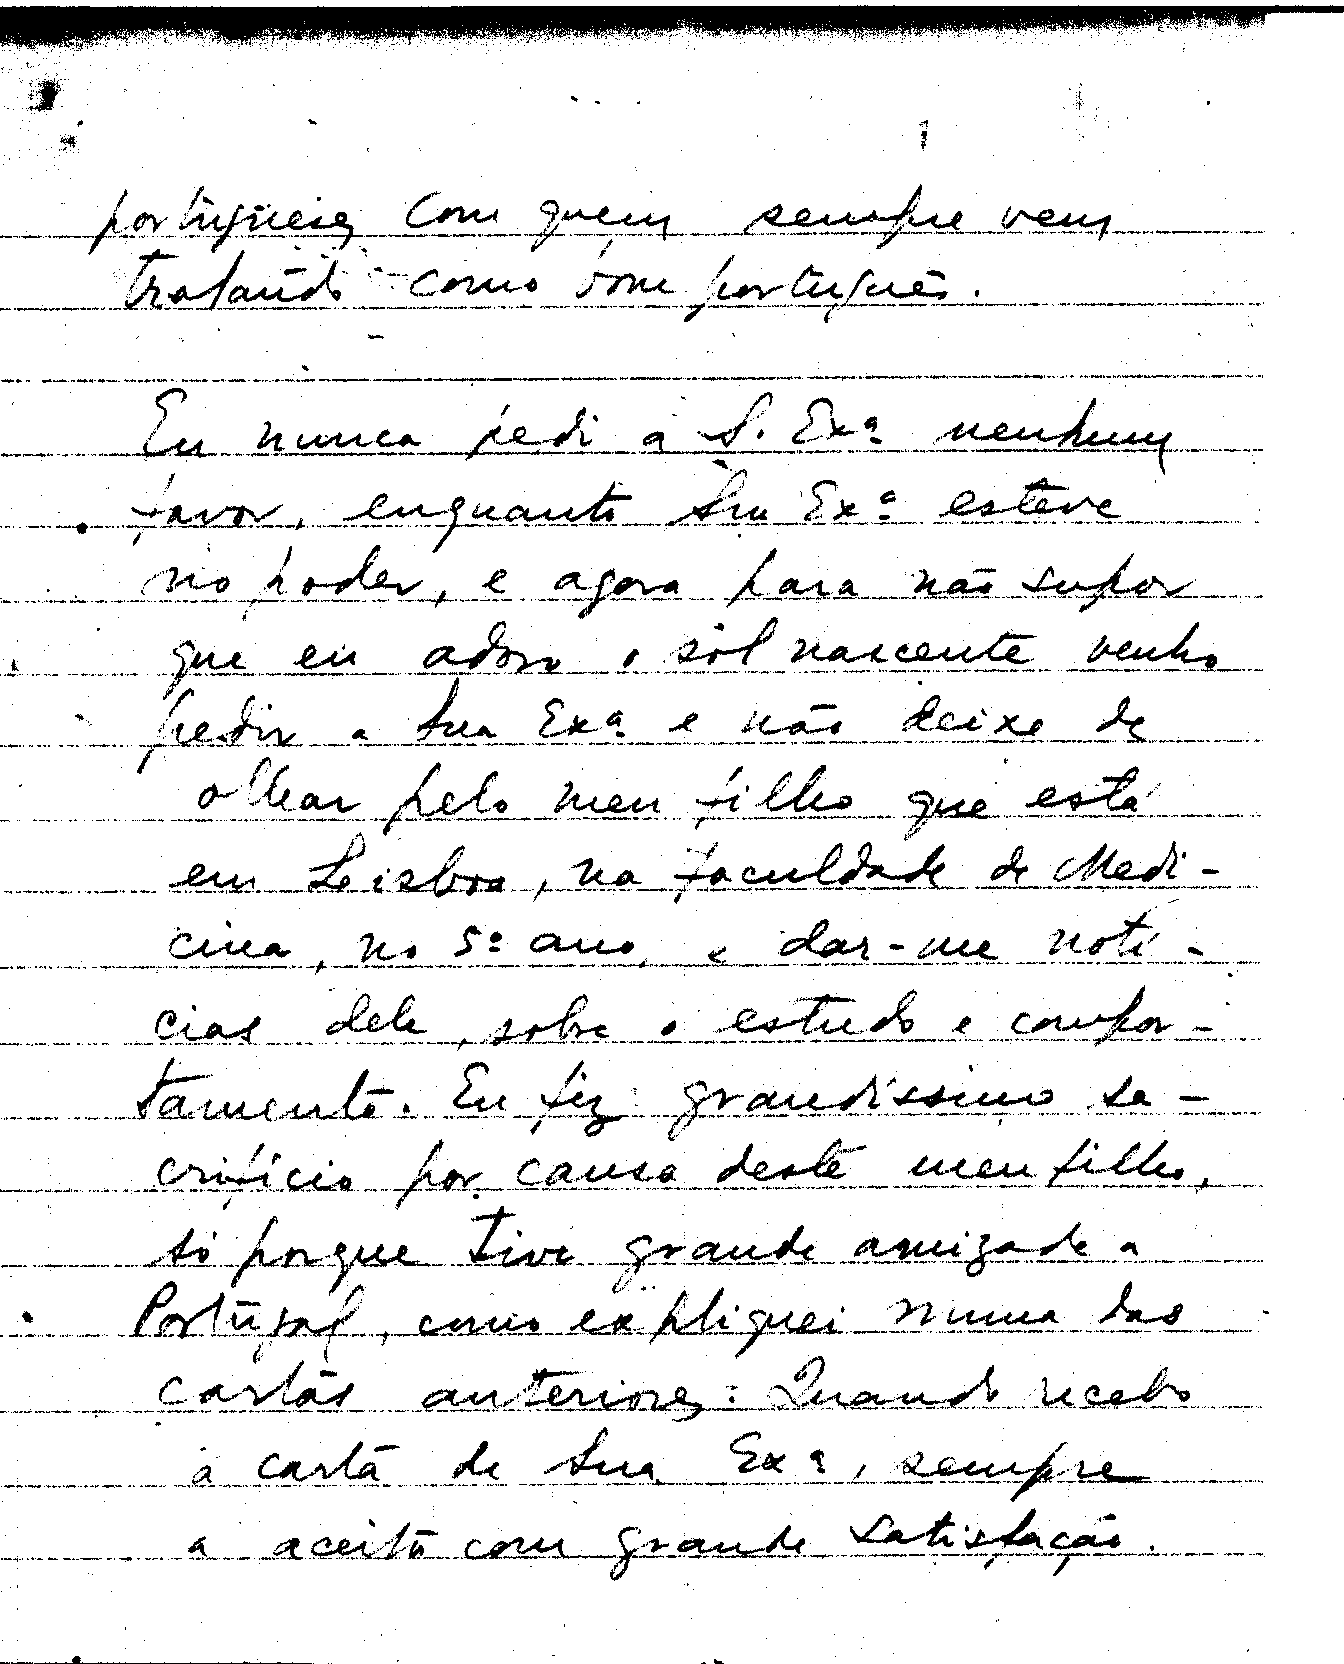 portugueses com quem sempre vem
tratando como bom português.
Eu nunca pedi a S. Exª nenhum
favor, enquanto Sua Exª esteve
no poder, e agora para não supor
que eu adoro o sól nascente venho
pedir a Sua Exª e não deixe de
olhar pelo meu filho que está
em Leisboa, na Faculdade de Medi-
cina, no 5º ano, e dar-me notí-
cias dele, sobre o estudo e compor-
tamento. Eu fiz grandíssimo sa-
crifício por causa deste meu filho,
só porque tive grande amizade a
Portugal, como expliquei numa das
cartas anteriores: Quando recebo
a carta de Sua Exª, sempre
a aceito com grande satisfação.